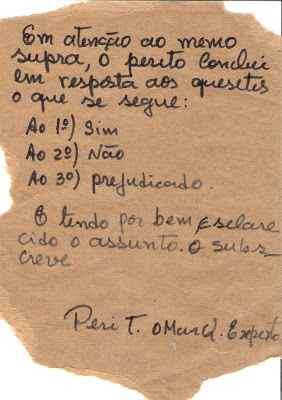 Em atenção ao memo
supra, o perito conclui
em resposta aos quesetes
o que se segue:
Ao 1º) Sim
Ao 2º) Não
Ao 3º) prejudicado.
E tendo por bem esclare
cido o assunto. o subs_
creve
Peri T.